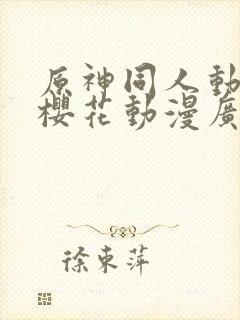 原神同人動
櫻花動漫廣
徐東萍